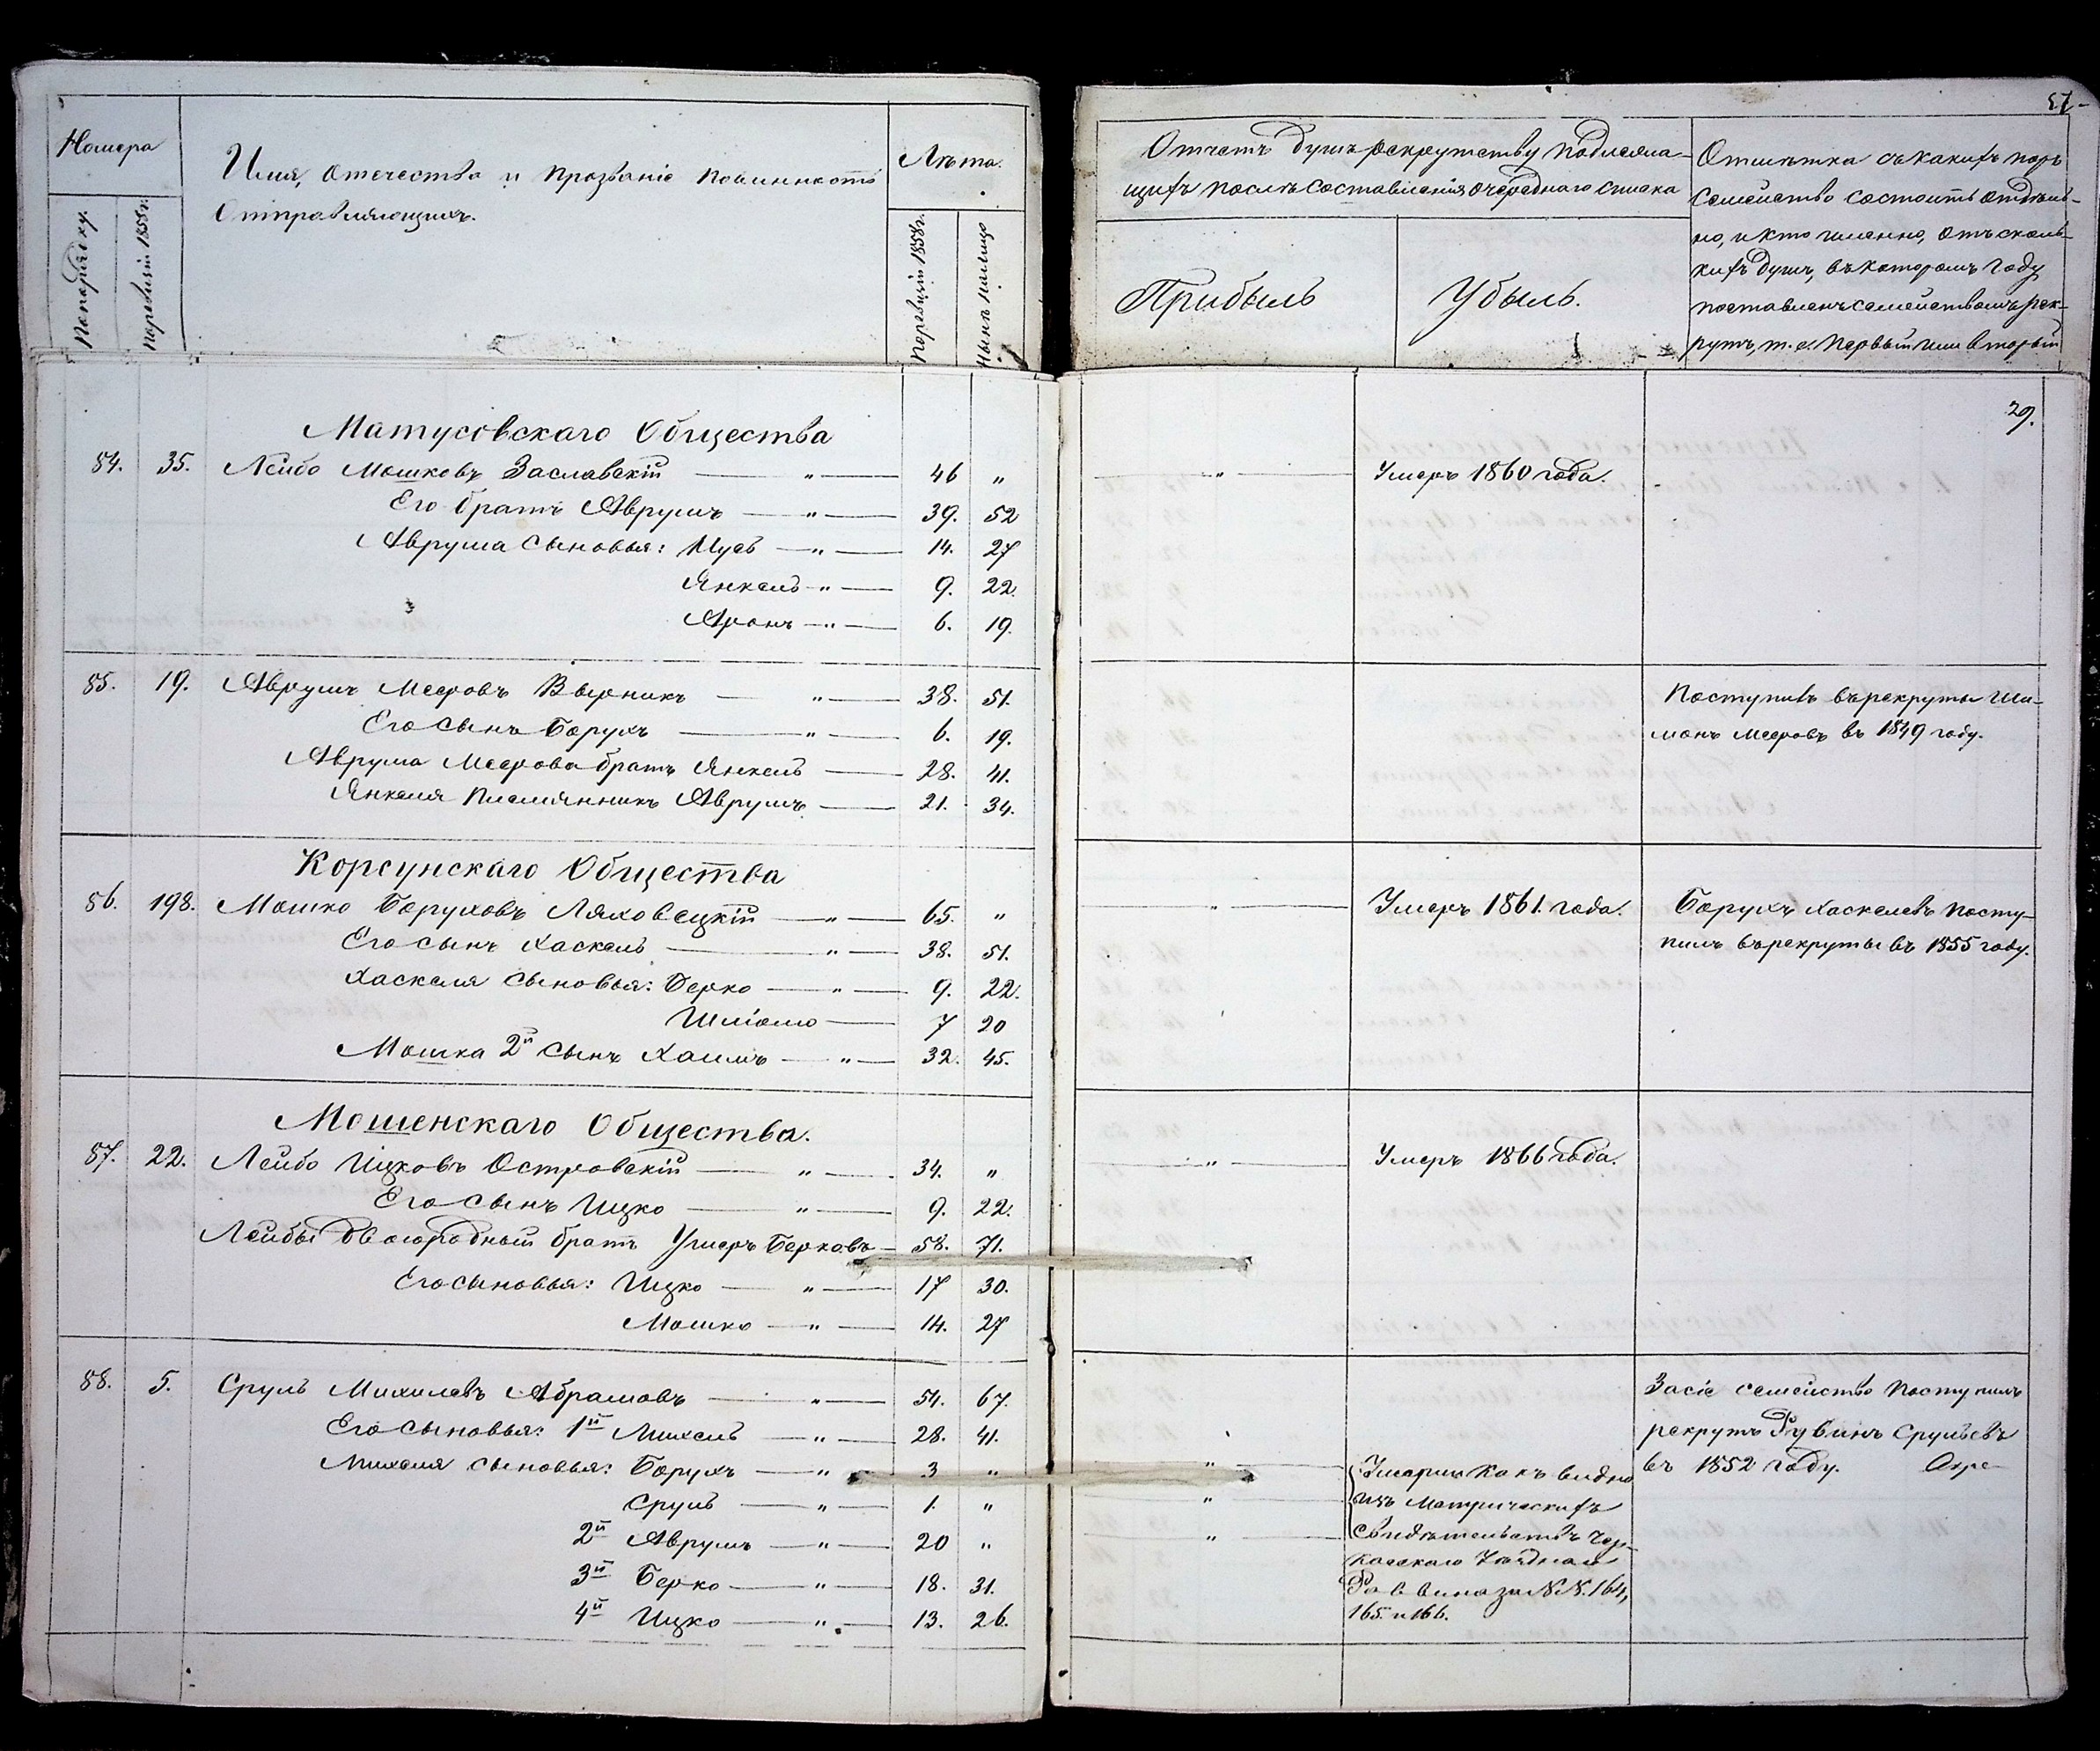 Номера
Имя, отечество и прозваніе повинность
отправляющихъ.
Лѣта.
По порядку.
По ревизіи 1858 г.
По ревизіи 1858 г.
Нынѣ
57
Отчетъ душъ рекрутству подлежа-
щихъ послѣ составленія очереднаго списка
Прибыль
Убыль.
Отмѣтка съ какихъ поръ
семейство состоитъ отдѣль-
но, и кто именно, отъ сколь-
кихъ душъ, въ которомъ году
поставленъ семействомъ рек-
рутъ, т. е. первый или вторый
29.
Матусовскаго Общества
84. 35. Лейбо Мошковъ Заславскій — " — 46 " — " — Умеръ 1860 года.
Его братъ Аврумъ — " — 39. 52
Аврума сыновья: Мусь — " — 14. 27
Янкель — " — 9. 22.
Аронъ — " — 6. 19.
85. 19. Аврумъ Мееровъ Вырникъ — " — 38. 51. Поступивъ въ рекруты Ши-
Его сынъ Борухъ — " — 6. 19. монъ Мееровъ въ 1849 году.
Аврума Меерова братъ Янкель — 28. 41.
Янкеля племянникъ Аврумъ — 21. 34.
Корсунскаго Общества
86. 198. Мошко Боруховъ Ляховецкій — " — 65. " — " — Умеръ 1861. года. Борухъ Хаскелевъ посту-
Его сынъ Хаскель — " — 38. 51. пилъ въ рекруты въ 1855 году.
Хаскеля сыновья: Берко — " — 9. 22.
Шліомо — 7 20
Мошка 2й сынъ Хаимъ — " — 32. 45.
Мошенскаго Общества.
87. 22. Лейбо Ицковъ Островскій — " — 34. " — " — Умеръ 1866 года.
Его сынъ Ицко — " — 9. 22.
Лейбы двоюродный братъ Умеръ Берковъ — 58. 71.
Его сыновья: Ицко — " — 17 30.
Мошко — " — 14. 27
88. 5. Сруль Михилевъ Абрамовъ — " — 54. 67. За сіе семейство поступилъ
Его сыновья: 1й Михель — " — 28. 41. рекрутъ Рувинъ Срульевъ
Михеля сыновья: Борухъ — " — 3 " — " — Умерли какъ видно въ 1852 году.
Сруль — " — 1. " — " — изъ Метрическихъ
2й Аврумъ — " — 20 " — " — свидѣтельствъ Чер-
3й Берко — " — 18. 31. касскаго Уѣзднаго
Раввина за NN. 164,
4й Ицко — " — 13. 26. 165. и 166.